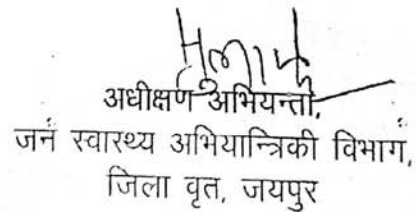 अधीक्षण अभियन्ता,
जन स्वास्थ्य अभियान्त्रिकी विभाग,
जिला वृत, जयपुर